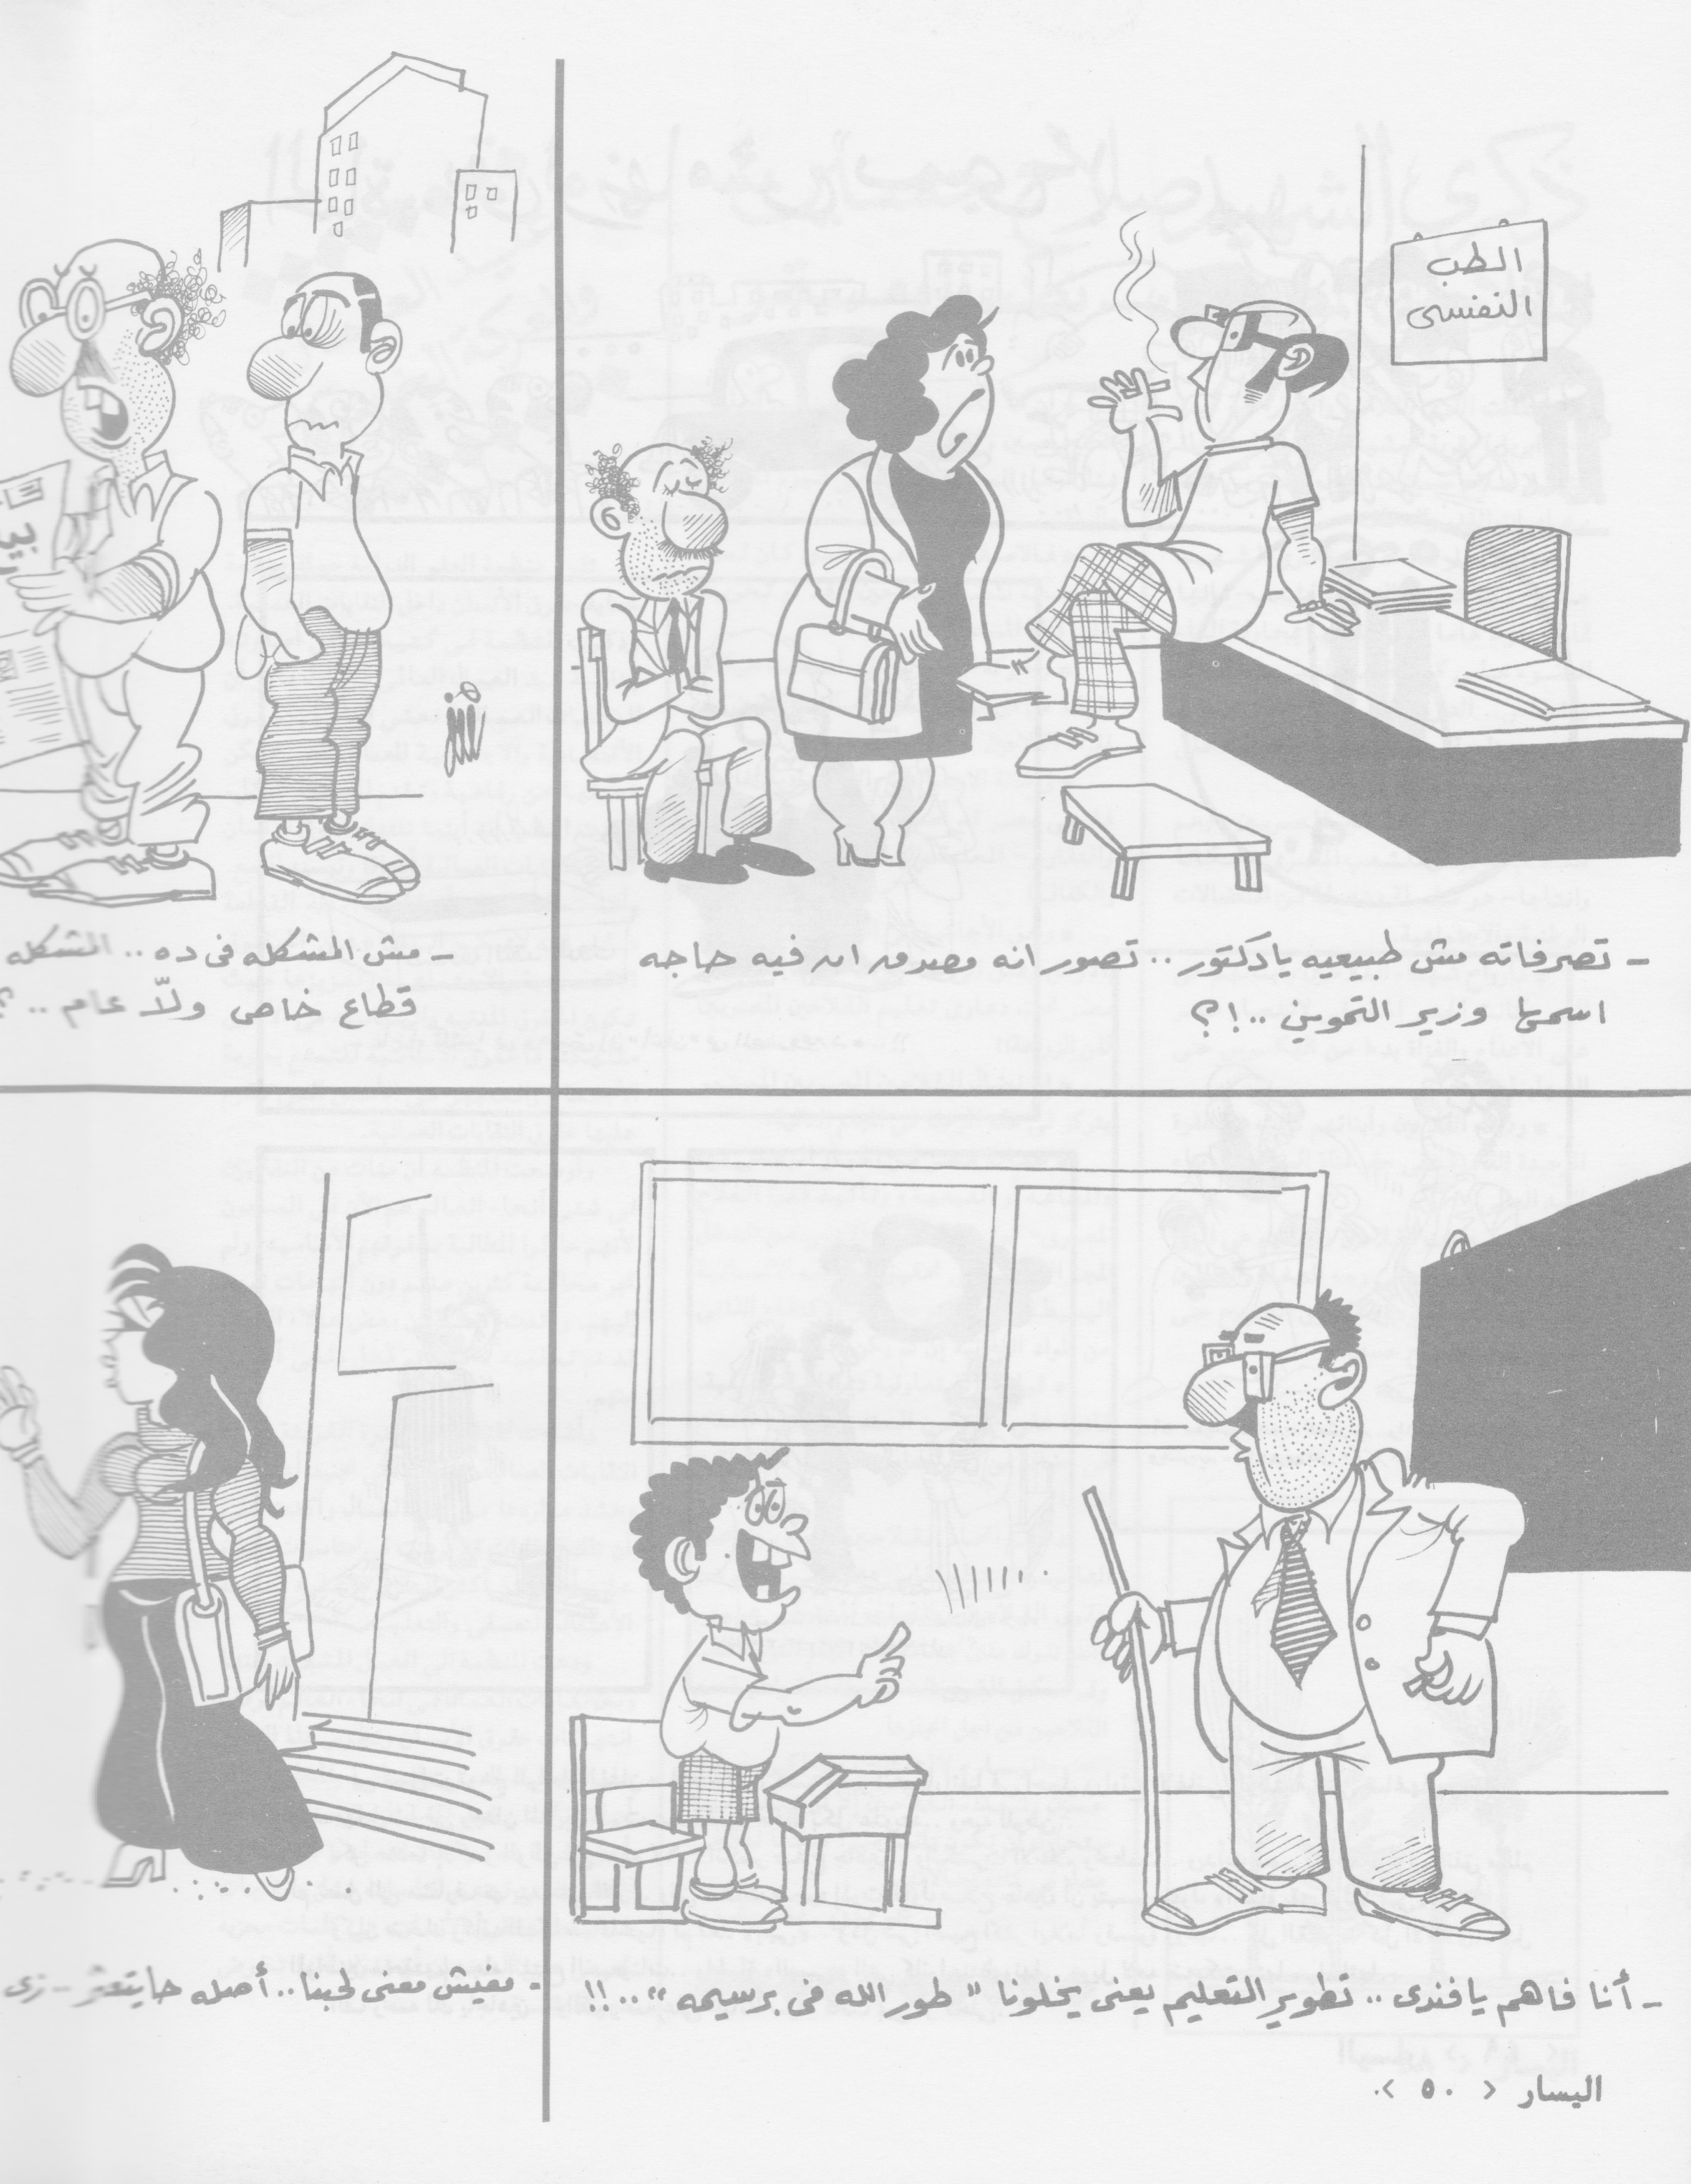 الطب
النفسى
- تصرفاته مش طبيعيه يا دكتور .. تصور انه مصدق ان فيه حاجه
اسمها وزير التموين ..!؟
- مش المشكله فى ده .. المشكله
قطاع خاص ولّا عام .. ؟
- أنا فاهم يا فندى .. تطوير التعليم يعنى يخلونا " طور الله فى برسيمه " ..!!
- مفيش معنى لحبنا .. أصله حايتعثر - زى
اليسار < ٥٠ >